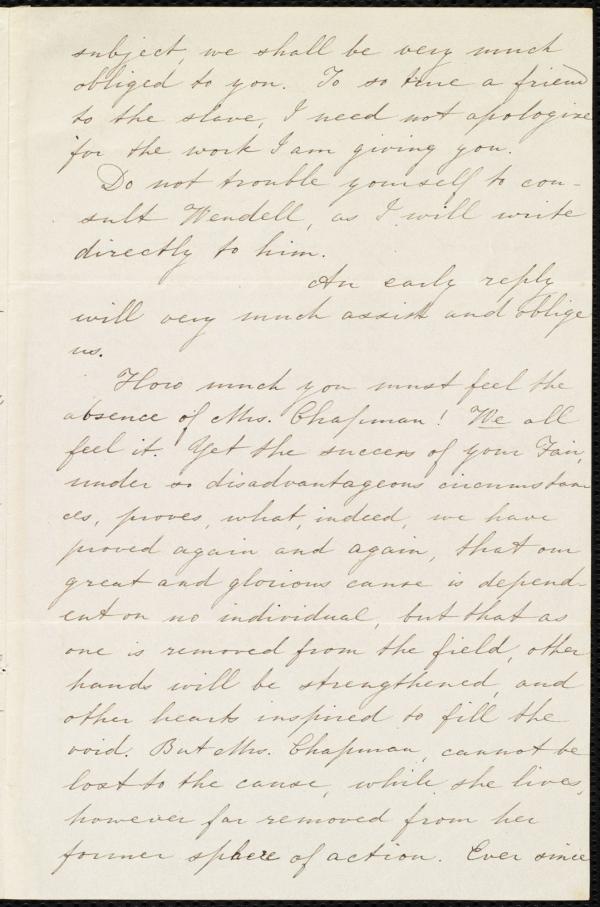 subject, we shall be very much
obliged to you. To so true a friend
to the slave, I need not apologize
for the work I am giving you.
Do not trouble yourself to con-
sult Wendell, as I will write
directly to him.
An early reply
will very much assist and oblige
us.
How much you must feel the
absence of Mrs. Chapman! We all
feel it. Yet the success of your Fair,
under so disadvantageous circumstan
ces, proves, what, indeed, we have
proved again and again, that our
great and glorious cause is depend-
ent on no individual, but that as
one is removed from the field, other
hands will be strengthened, and
other hearts inspired to fill the
void. But Mrs. Chapman, cannot be
lost to the cause, while she lives,
however far removed from her
former sphere of action. Ever since